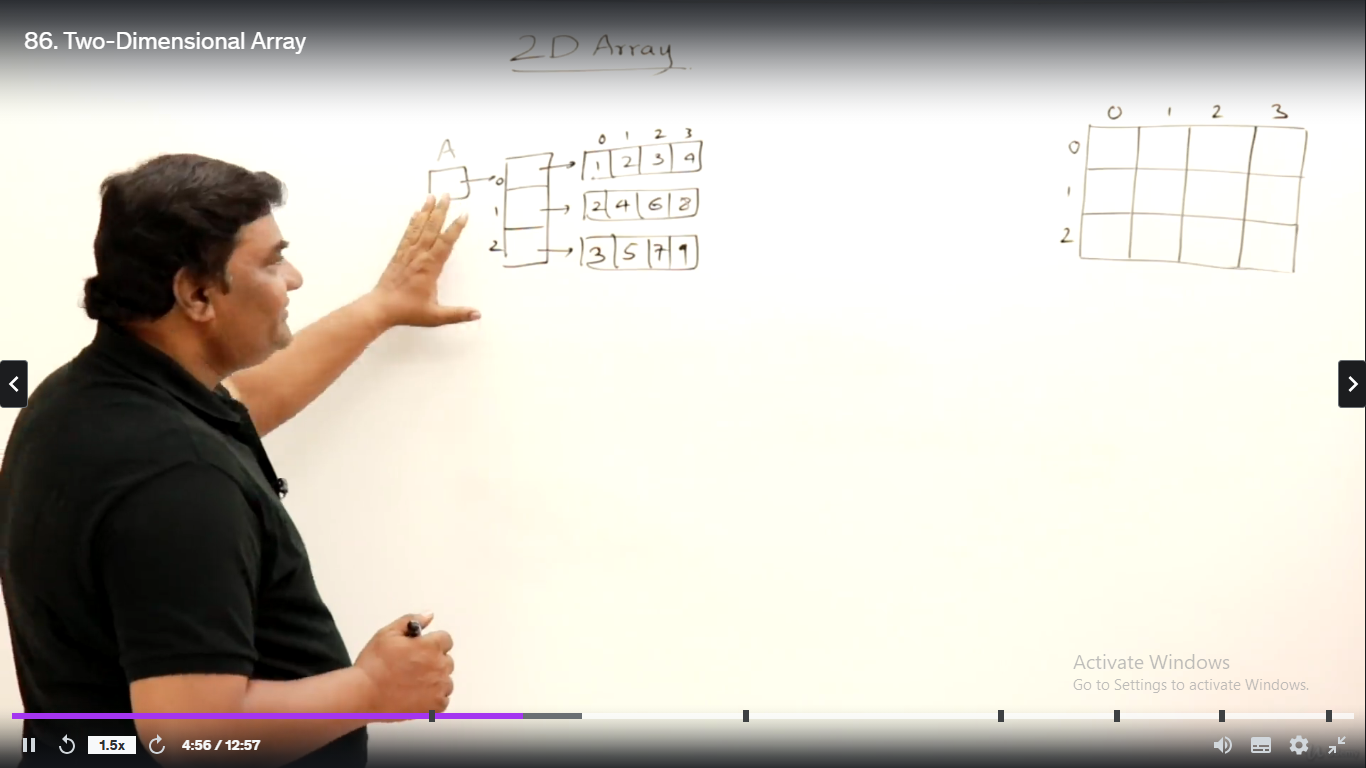 86. Two-Dimensional Array
2D Array
A
0 1 2 3
0 1 2 3 4
1 2 4 6 8
2 3 5 7 9
0 1 2 3
0
1
2
Activate Windows
Go to Settings to activate Windows.
1.5x
4:56 / 12:57